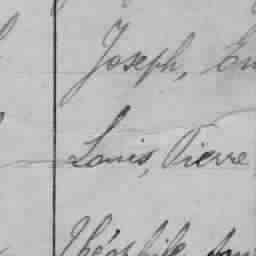 Joseph, Em
Louis, Pierre
Théophile